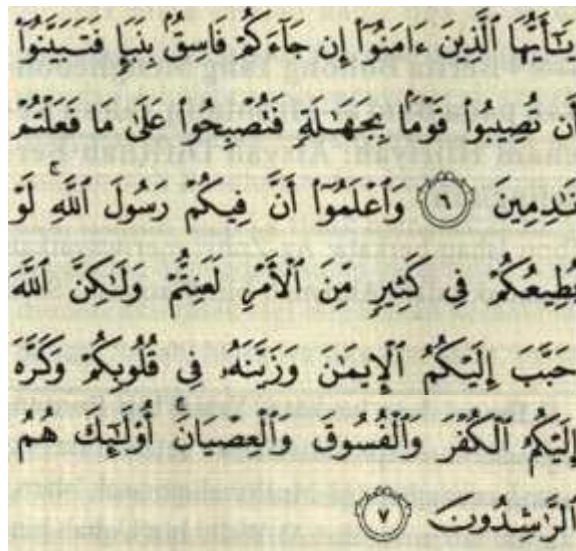 يَٰٓأَيُّهَا ٱلَّذِينَ ءَامَنُوٓا۟ إِن جَآءَكُمْ فَاسِقٌۢ بِنَبَإٍ فَتَبَيَّنُوٓا۟
أَن تُصِيبُوا۟ قَوْمًۢا بِجَهَٰلَةٍ فَتُصْبِحُوا۟ عَلَىٰ مَا فَعَلْتُمْ
نَٰدِمِينَ ٦ وَٱعْلَمُوٓا۟ أَنَّ فِيكُمْ رَسُولَ ٱللَّهِ ۚ لَوْ
يُطِيعُكُمْ فِى كَثِيرٍ مِّنَ ٱلْأَمْرِ لَعَنِتُّمْ وَلَٰكِنَّ ٱللَّهَ
حَبَّبَ إِلَيْكُمُ ٱلْإِيمَٰنَ وَزَيَّنَهُۥ فِى قُلُوبِكُمْ وَكَرَّهَ
إِلَيْكُمُ ٱلْكُفْرَ وَٱلْفُسُوقَ وَٱلْعِصْيَانَ ۚ أُو۟لَٰٓئِكَ هُمُ
ٱلرَّٰشِدُونَ ٧